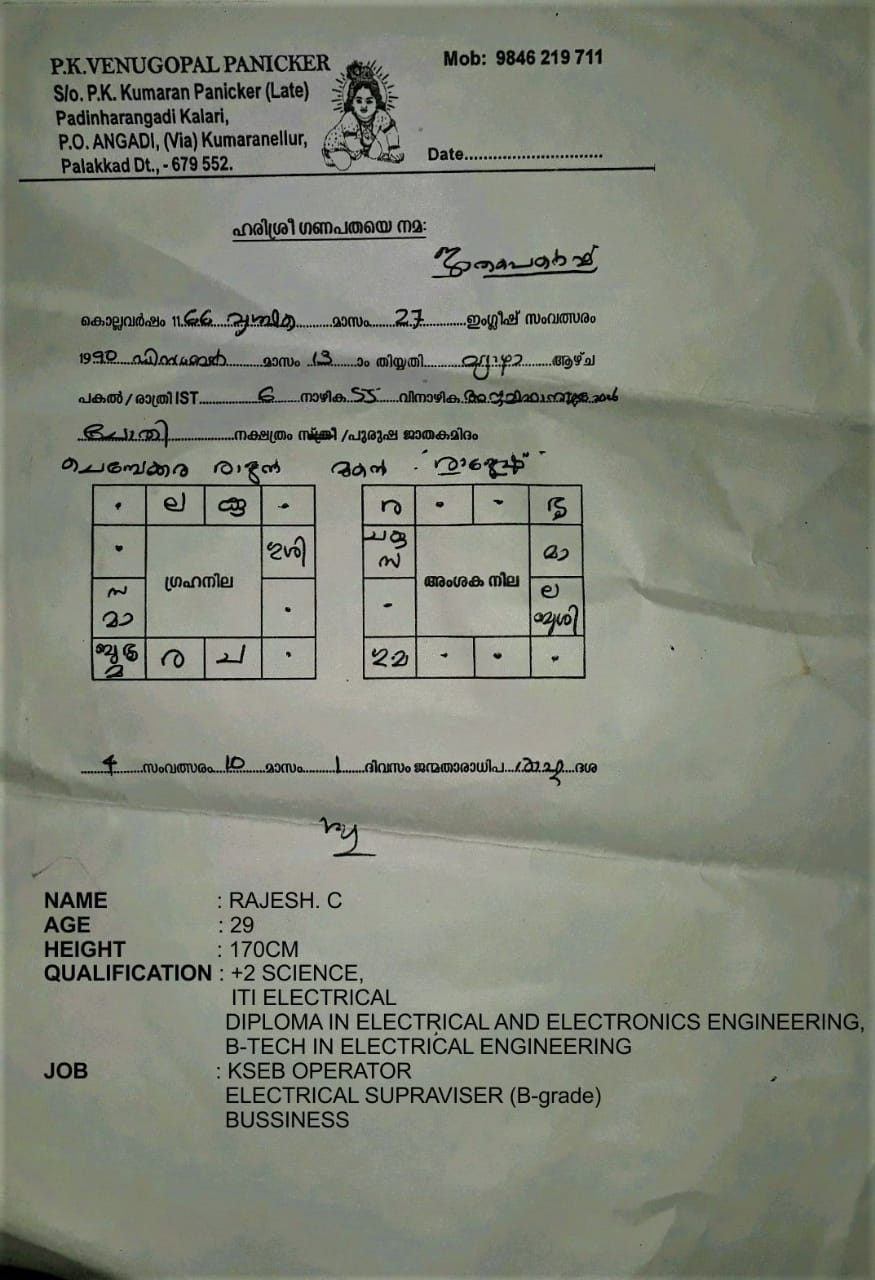 P.K.VENUGOPAL PANICKER
S/o. P.K. Kumaran Panicker (Late)
Padinharangadi Kalari,
P.O. ANGADI, (Via) Kumaranellur,
Palakkad Dt., - 679 552.
Mob: 9846 219 711
Date..............................
ഹരിശ്രീ ഗണപതയെ നമഃ
കൊല്ലവർഷം 1166 വൃശ്ചിക മാസം 27 ഇംഗ്ലീഷ് സംവത്സരം
1990 ഡിസംബർ മാസം 13 ാം തിയ്യതി വ്യാഴം ആഴ്ച
പകൽ / രാത്രി IST 6 നാഴിക 55 വിനാഴിക
ചോതി നക്ഷത്രം സ്ത്രീ /പുരുഷ ജാതകമിദം
രാജൻ മകൻ "രാജേഷ്"
. ല കു .
. ഗുശി
ഗ്രഹനില
സ
മാ .
ബുശു
മ ര ച .
ര . . ശു
ച കു
സ മാ
അംശക നില
- ല
ബുശി
ഗുമ . . .
4 സംവത്സരം 10 മാസം 1 ദിവസം ജന്മതാരാധിപ രാഹു ദശ
NAME : RAJESH. C
AGE : 29
HEIGHT : 170CM
QUALIFICATION : +2 SCIENCE,
ITI ELECTRICAL
DIPLOMA IN ELECTRICAL AND ELECTRONICS ENGINEERING,
B-TECH IN ELECTRICAL ENGINEERING
JOB : KSEB OPERATOR
ELECTRICAL SUPRAVISER (B-grade)
BUSSINESS